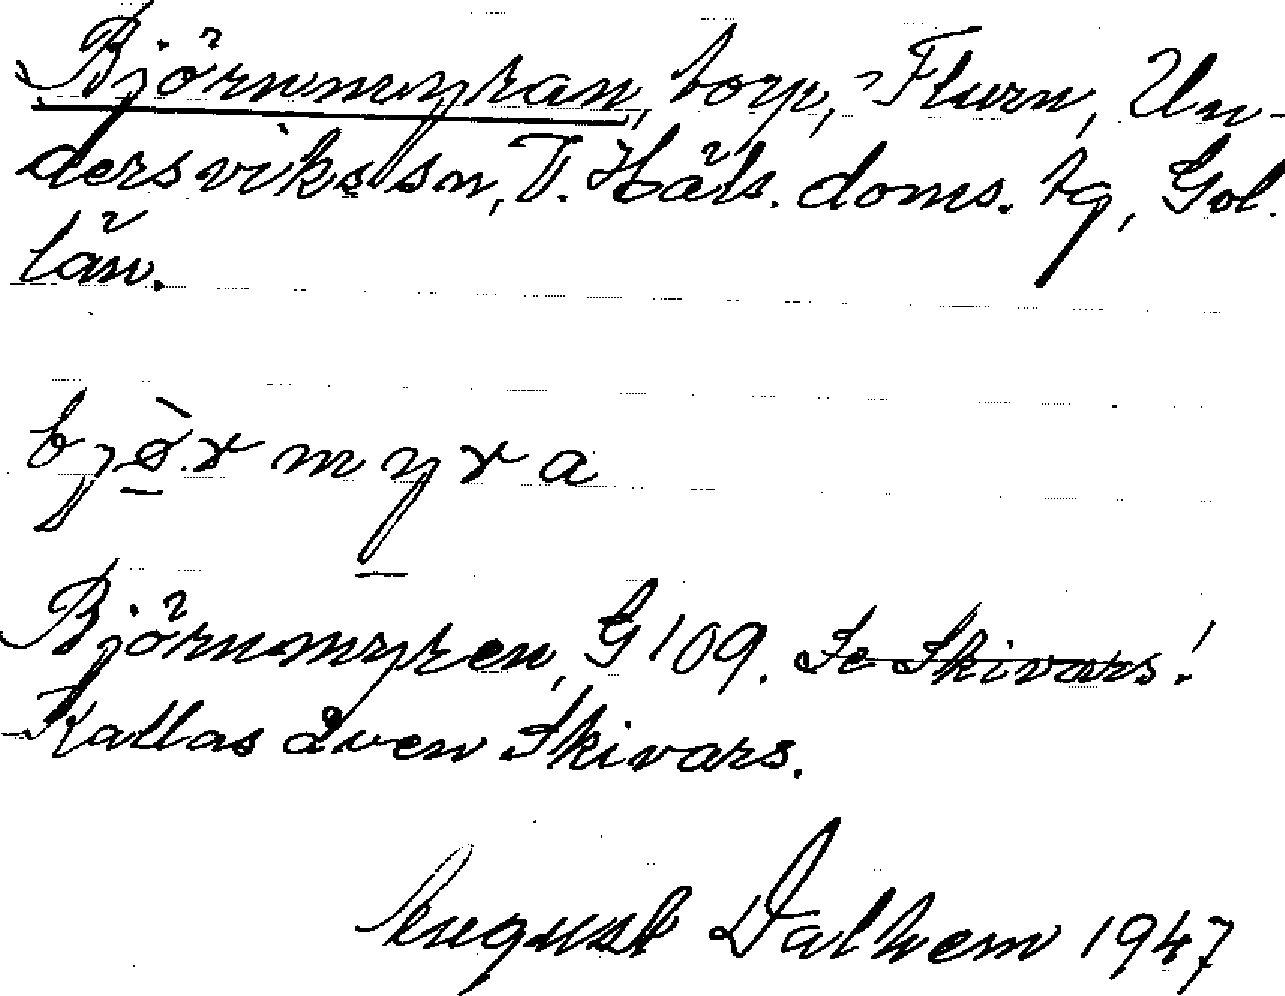 Björnmyran, torp, Flurn, Un-
dersviks sn, V. Häls. doms. tg, Gvl.
län.
bjø̀r myra
Björnmyren, G 109. Se Skivars!
Kallas även Skivars.
August Dalhem 1947